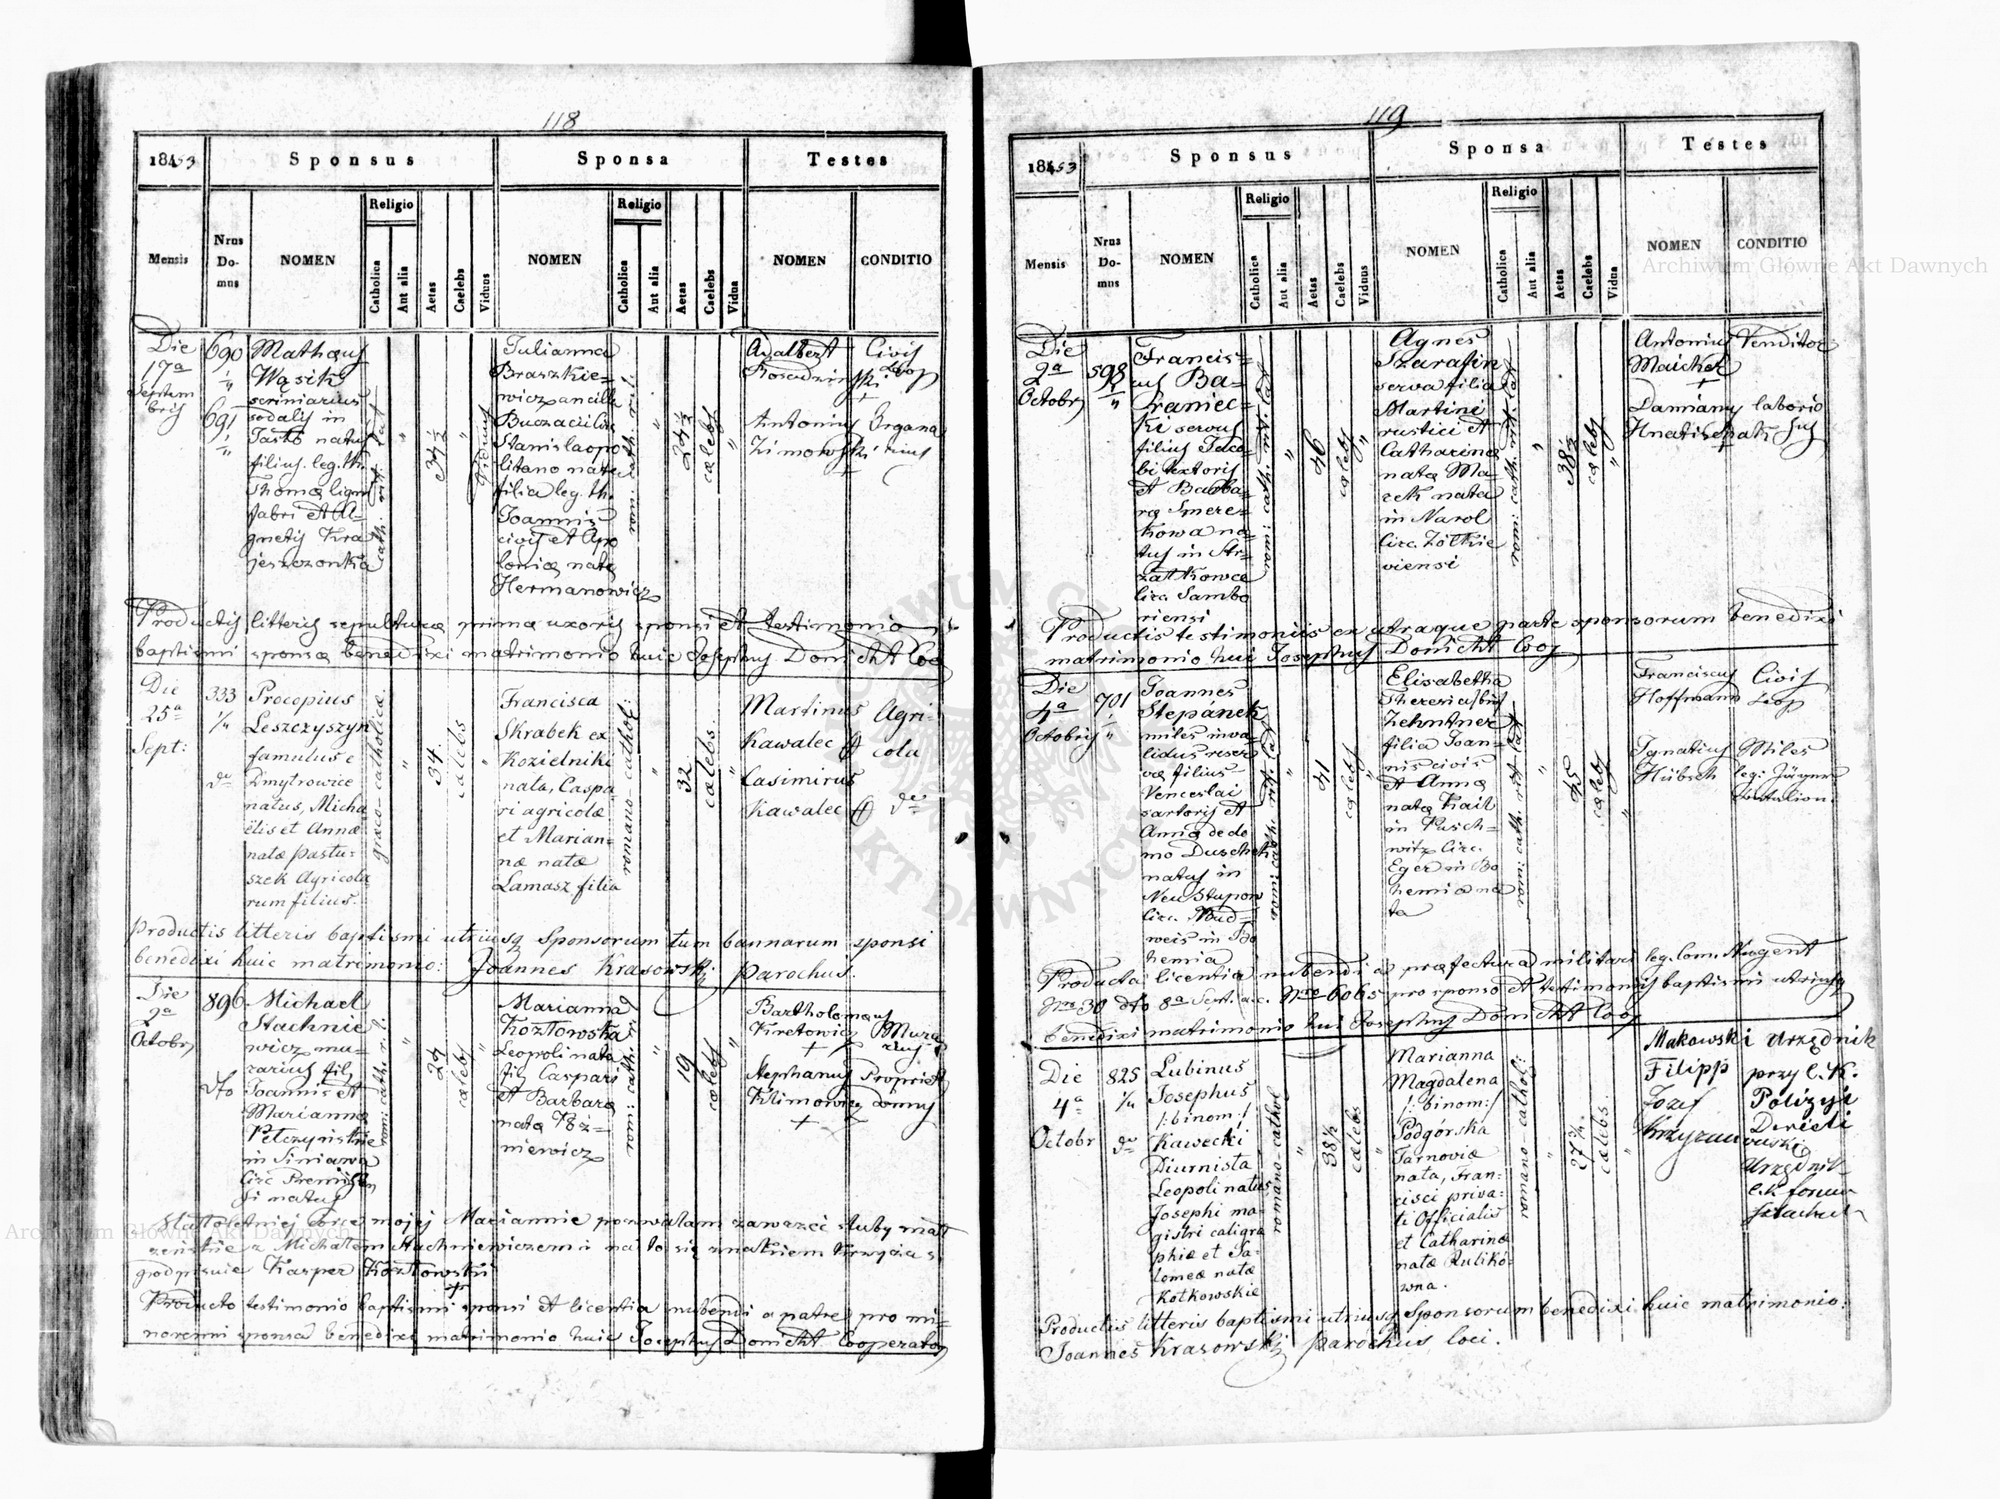 118
1853
Sponsus
Sponsa
Testes
Mensis
Nrus Domus
NOMEN
Religio
Catholica
Aut alia
Aetas
Caelebs
Viduus
NOMEN
Religio
Catholica
Aut alia
Aetas
Caelebs
Vidua
NOMEN
CONDITIO
Die
17a
Septem
bris
690
1/"
691
1/"
Mathæus
Wąsik
scriniarius
sodalis in
Jasło natus
filius leg. th.
Thomæ lign
fabri et A-
gnetis Kra
jeszczonka
cath. rit. lat
"
34 1/2
"
viduus
Julianna
Braszkie-
wicz ancilla
Buczacii Circ
Stanislaopo
litano nata
filia leg. th.
Joannis
civis et Apo
loniæ natæ
Hermanowicz
rom: cath: rit:
"
24 1/2
cælebs
"
Adalbert
+
Antonius
Zimowski
+
Civis
Leop
Organa
rius
Productis litteris sepulturæ primæ uxoris sponsi et testimonio
baptismi sponsæ benedixi matrimonio huic Josephus Donicht Coop
Die
25a
Sept:
333
1/4
do
Procopius
Leszczyszyn
famulus e
Dmytrowice
natus, Micha
ëlis et Annæ
natæ Pastu-
szek Agricola
rum filius.
græco-catholica
"
34.
cælebs
"
Francisca
Skrabek ex
Kozielniki
nata, Caspa
ri agricolæ
et Marian-
næ natæ
Lamasz filia
romano-cathol:
"
32
cælebs.
"
Martinus
Kawalec +
Casimirus
Kawalec +
Agri-
cola
do
Productis litteris baptismi utriusq Sponsorum tum bannarum sponsi
benedixi huic matrimonio: Joannes Krasowski parochus.
Die
2a
Octobris
896
dto
Michael
Stachnie
wicz mu-
rarius fil.
Joannis et
Mariannæ
Pełczyńskie
in Siniawa
Circ Premisl
si natus
rom: cath. r. l.
"
29
cælebs
"
Marianna
Kozłowska
Leopoli nata
fi: Caspari
et Barbaræ
natæ Wóz-
niewicz
rom: cath: rit
"
19
cælebs
"
Bartholomæus
Kretowicz
+
Stephanus
Klimowicz
+
Mura
rius
Propriet
domus
Małoletniej córce mojej Mariannie pozwalam zawrzeć śluby mał
żeńskie z Michałem Stachniewiczem i na to się znakiem krzyża s.
podpisuie Kasper Kozłowski
+
Producto testimonio baptismi sponsi et licentia nubendi a patre pro mi-
norenni sponsa benedixi matrimonio huic Josephus Donicht Cooperator
119
1853
Sponsus
Sponsa
Testes
Mensis
Nrus Domus
NOMEN
Religio
Catholica
Aut alia
Aetas
Caelebs
Viduus
NOMEN
Religio
Catholica
Aut alia
Aetas
Caelebs
Vidua
NOMEN
CONDITIO
Die
2a
Octobris
598
"
Francis-
cus Ba-
raniec-
ki servus
filius Jaco-
bi textoris
et Barba-
ræ Smere-
kowa na-
tus in Str-
załkowce
circ. Sambo
riensi
rom: cath: rit: lat
"
46
cælebs
"
Agnes
Szarafin
serva filia
Martini
rustici et
Catharinæ
natæ Ma-
zek nata
in Narol
Circ. Żółkie
viensi
rom: cath. rit: lat
"
38 1/2
cælebs
"
Antonius
Maichek
+
Damianus
Hnatiszak
+
Venditor
laborio
sus
Productis testimoniis ex utraque parte sponsorum benedixi
matrimonio huic Josephus Donicht Coop
Die
4a
Octobris
701
1/"
Joannes
Stepánek
miles inva-
lidus reser-
væ filius
Venceslai
sartoris et
Annæ de do
mo Duschek
natus in
Neu Stupow
circ. Bud-
weis in Bo
hemia
rom: cath: rit: lat
"
41
cælebs
"
Elisabetha
Theresia /bin/
Zehntner
filia Joan-
nis civis
et Annæ
natæ Kail
in Pusch-
witz Circ.
Eger in Bo
hemia na
ta
rom: cath. rit lat
"
45
cælebs
"
Franciscus
Hoffmann
Ignatius
Hübsch
Civis
Leop
Miles
leg: Jäger
Battalion.
Producta licentia nubendi a præfectura militari leg. Com. Nugent
Nro 30 dto 8a Sept. a.c. Nro 6065 pro sponso et testimoniis baptismi utriusq
benedixi matrimonio huic Josephus Donicht Coop
Die
4a
Octobr
825
1/4
do
Lubinus
Josephus
/: binom:/
Kawecki
Diurnista
Leopoli natus,
Josephi ma-
gistri caligra
phiæ et Sa-
lomeæ natæ
Kotkowskie
romano-cathol
"
38 1/2
cælebs
"
Marianna
Magdalena
/: binom:/
Podgórska
Tarnoviæ
nata, Fran-
cisci priva-
ti Officialis
et Catharinæ
natæ Kuliko-
wna.
romano-cathol:
"
27 3/4
cælebs.
"
Makowski
Filipp
Józef
Urzędnik
przy C. K.
Policyi
Direcii
Urzędnik
C.K.
Productis litteris baptismi utriusq Sponsorum benedixi huic matrimonio:
Joannes Krasowski parochus loci.
Archiwum Główne Akt Dawnych
Archiwum Główne Akt Dawnych
ARCHIWUM GŁÓWNE AKT DAWNYCH